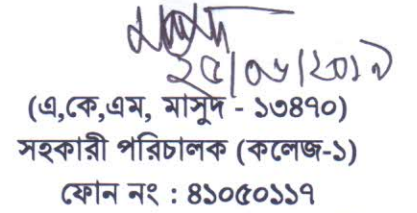 মাসুদ
২৫/০৬/২০১৯
(এ,কে,এম, মাসুদ - ১৩৪৭০)
সহকারী পরিচালক (কলেজ-১)
ফোন নং : ৪১০৫০১১৭